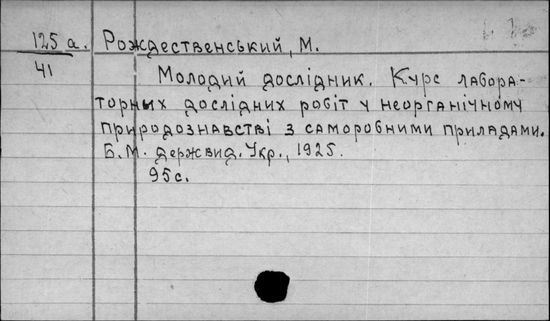 125 а. Рождественський, М.
41
Молодий дослідник. Курс лабора-
торных дослідних робіт у неорганічному
природознавстві з саморобними приладами.
Б.М. держвид. Укр., 1925.
95с.